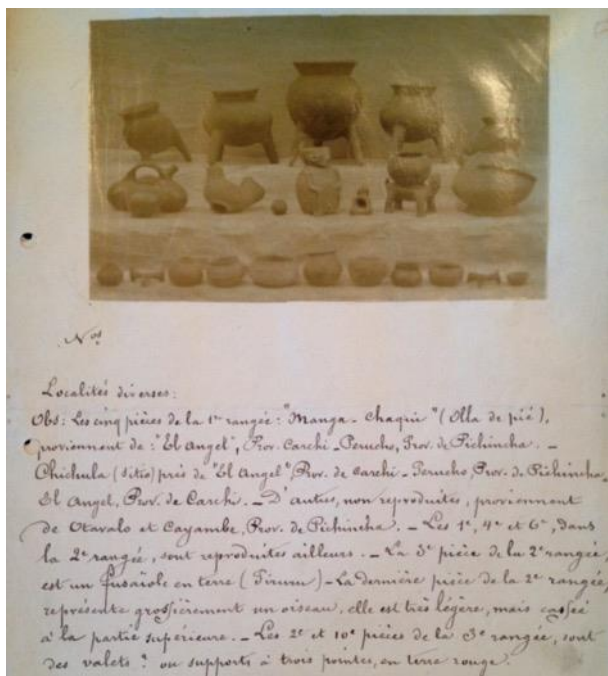 Nos
Localités diverses:
Obs: Les cinq pièces de la 1re rangée: "Manga-Chaqui" (Olla de pié),
proviennent de: "El Angel", Prov. Carchi - Perucho, Prov. de Pichincha. -
Chichula (sitio) près de "El Angel" Prov. de Carchi - Perucho, Prov. de Pichincha -
El Angel, Prov. de Carchi. - D'autres, non reproduites, proviennent
de Otavalo et Cayambe, Prov. de Pichincha. - Les 1e, 4e et 6e, dans
la 2e rangée, sont reproduites ailleurs. - La 3e pièce de la 2e rangée,
est un fusaïole en terre - La dernière pièce de la 2e rangée,
représente grossièrement un oiseau, elle est très légère, mais cassée
à la partie supérieure. - Les 2e et 10e pièces de la 3e rangée, sont
des valets? ou supports à trois pointes, en terre rouge.